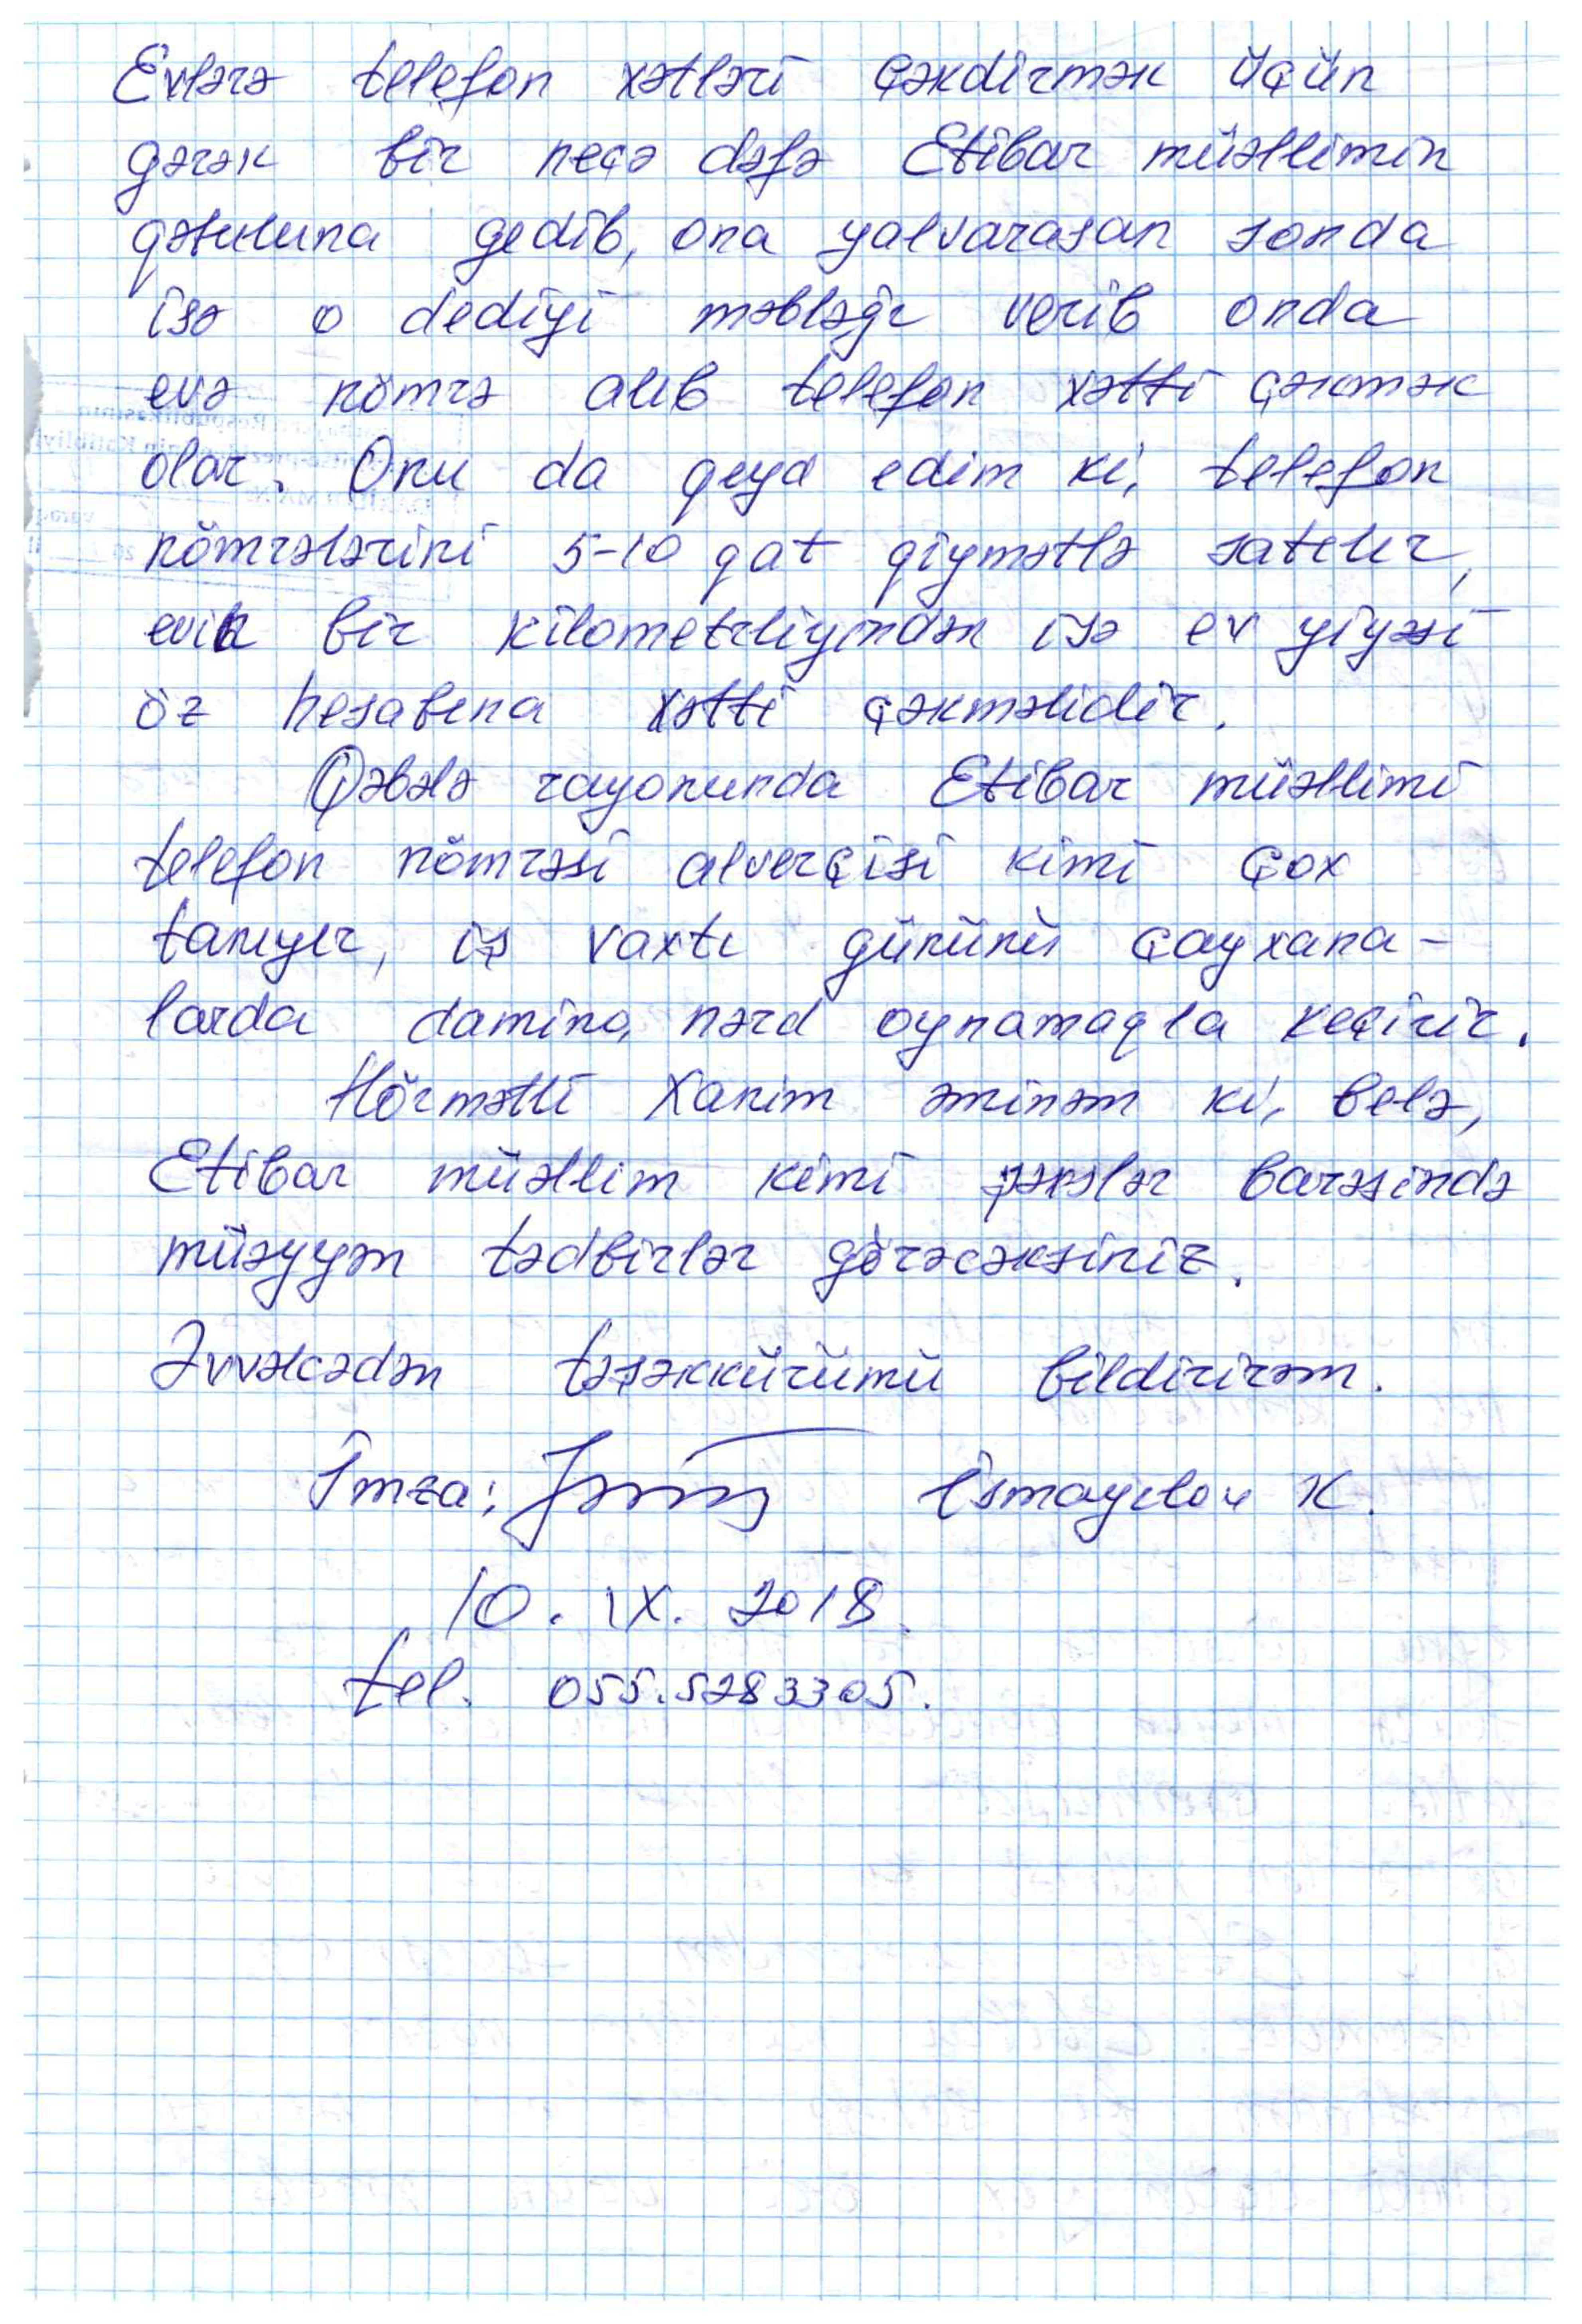 Evlərə telefon xətləri çəkdirmək üçün
gərək bir neçə dəfə Etibar müəllimin
qəbuluna gedib, ona yalvarasan sonda
isə o dediyi məbləği verib onda
evə nömrə alıb telefon xətti çəkmək
olar. Onu da qeyd edim ki, telefon
nömrələrini 5-10 qat qiymətlə satılır,
evin bir kilometrliyindən isə ev yiyəsi
öz hesabına xətti çəkməlidir.
Qəbələ rayonunda Etibar müəllimi
telefon nömrəsi alverçisi kimi çox
tanıyır, iş vaxtı gününü çayxana-
larda damino, nərd oynamaqla keçirir.
Hörmətli Xanim əminəm ki, belə,
Etibar müəllim kimi şəxslər barəsində
müəyyən tədbirlər görəcəksiniz.
Əvvəlcədən təşəkkürümü bildirirəm.
İmza: İsmayılov K.
10. IX. 2018.
tel. 055.5283305.